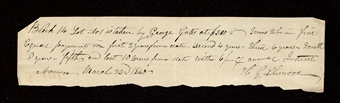 Block 14 Lot No 1 is taken by George Gates at $500 — Terms to be in five
Equal payments viz first 2 years from date second 4 years third 6 years fourth
8 years fifth and last 10 years from date with 6 per cent annual Interest
March 23d 1840